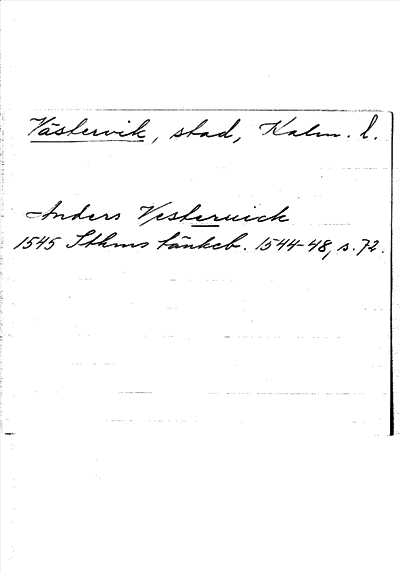 Västervik, stad, Kalm. l.
Anders Vesterwick
1545 Sthms tänkeb. 1544-48, s. 72.